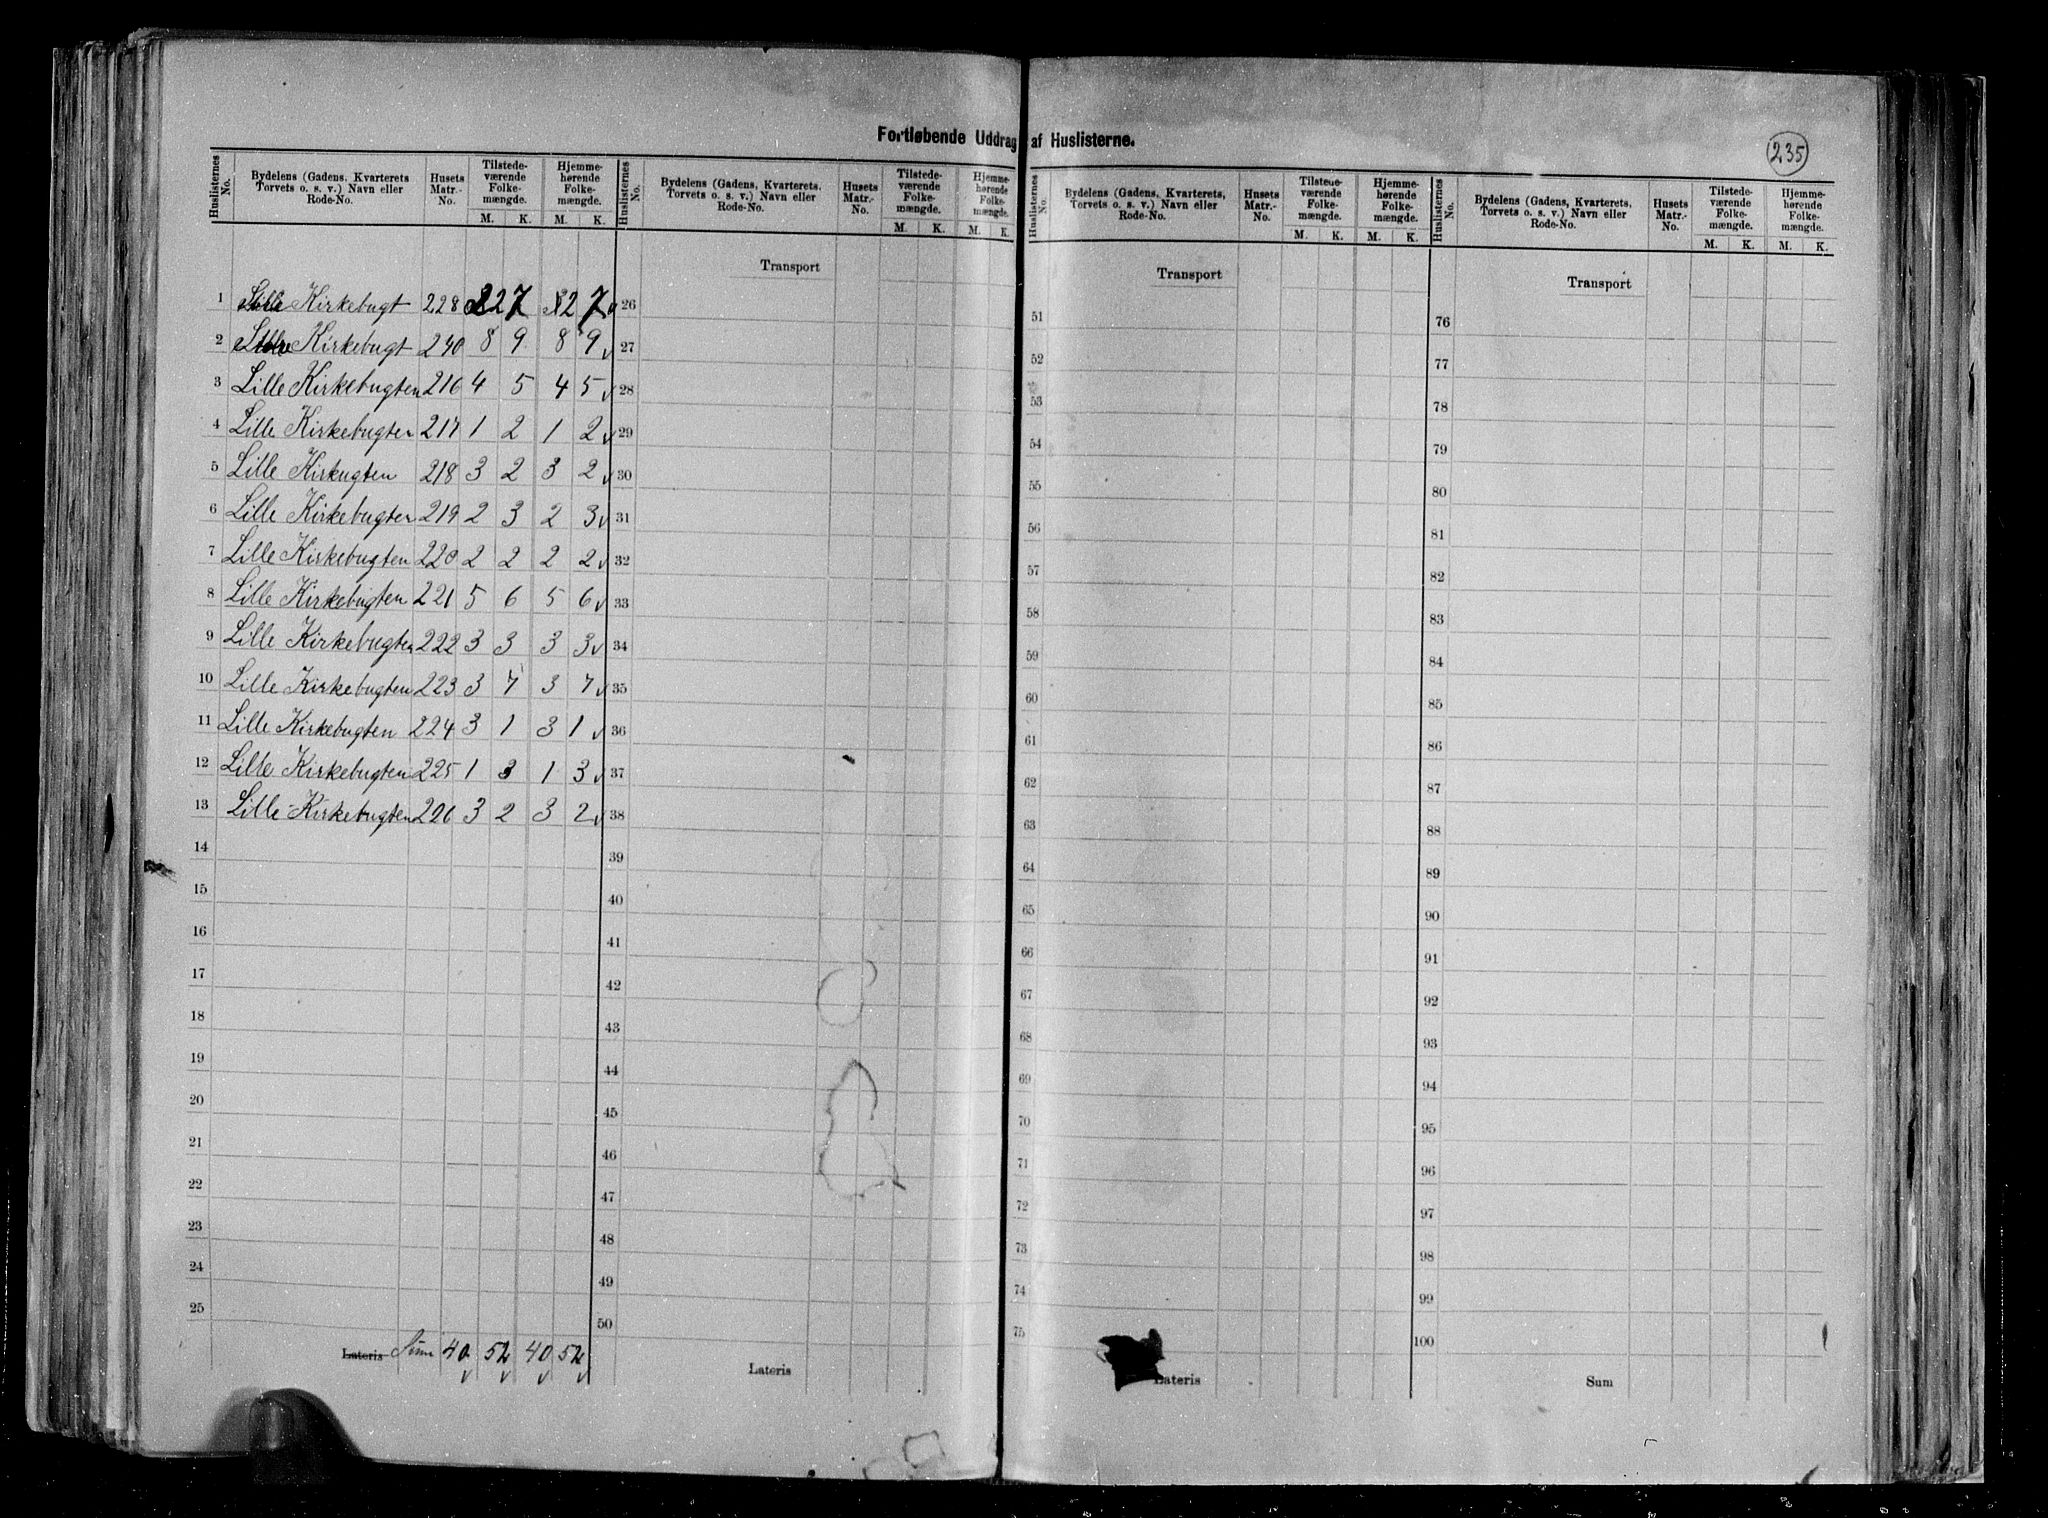 Fortløbende Uddrag af Huslisterne.
235
Huslisternes No. Bydelens (Gadens, Kvarterets Torvets o. s. v.) Navn eller Rode-No. Husets Matr.-No. Tilstedeværende Folkemængde. M. K. Hjemmehørende Folkemængde. M. K.
Huslisternes No. Bydelens (Gadens, Kvarterets, Torvets o. s. v.) Navn eller Rode-No. Husets Matr.-No. Tilstedeværende Folkemængde. M. K. Hjemmehørende Folkemængde. M. K.
Huslisternes No. Bydelens (Gadens, Kvarterets, Torvets o. s. v.) Navn eller Rode-No. Husets Matr.-No. Tilstedeværende Folkemængde. M. K. Hjemmehørende Folkemængde. M. K.
Huslisternes No. Bydelens (Gadens, Kvarterets, Torvets o. s. v.) Navn eller Rode-No. Husets Matr.-No. Tilstedeværende Folkemængde. M. K. Hjemmehørende Folkemængde. M. K.
1 Kirkebugt 228 2 7 2 7
2 Kirkebugt 240 8 9 8 9
3 Lille Kirkebugten 216 4 5 4 5
4 Lille Kirkebugten 217 1 2 1 2
5 Lille Kirkugten 218 3 2 3 2
6 Lille Kirkebugten 219 2 3 2 3
7 Lille Kirkebugten 220 2 2 2 2
8 Lille Kirkebugten 221 5 6 5 6
9 Lille Kirkebugten 222 3 3 3 3
10 Lille Kirkebugten 223 3 7 3 7
11 Lille Kirkebugten 224 3 1 3 1
12 Lille Kirkebugten 225 1 3 1 3
13 Lille Kirkebugten 226 3 2 3 2
14
15
16
17
18
19
20
21
22
23
24
25
Lateris Sum 40 52 40 52
Transport
26
27
28
29
30
31
32
33
34
35
36
37
38
39
40
41
42
43
44
45
46
47
48
49
50
Lateris
Transport
51
52
53
54
55
56
57
58
59
60
61
62
63
64
65
66
67
68
69
70
71
72
73
74
75
Lateris
Transport
76
77
78
79
80
81
82
83
84
85
86
87
88
89
90
91
92
93
94
95
96
97
98
99
100
Sum